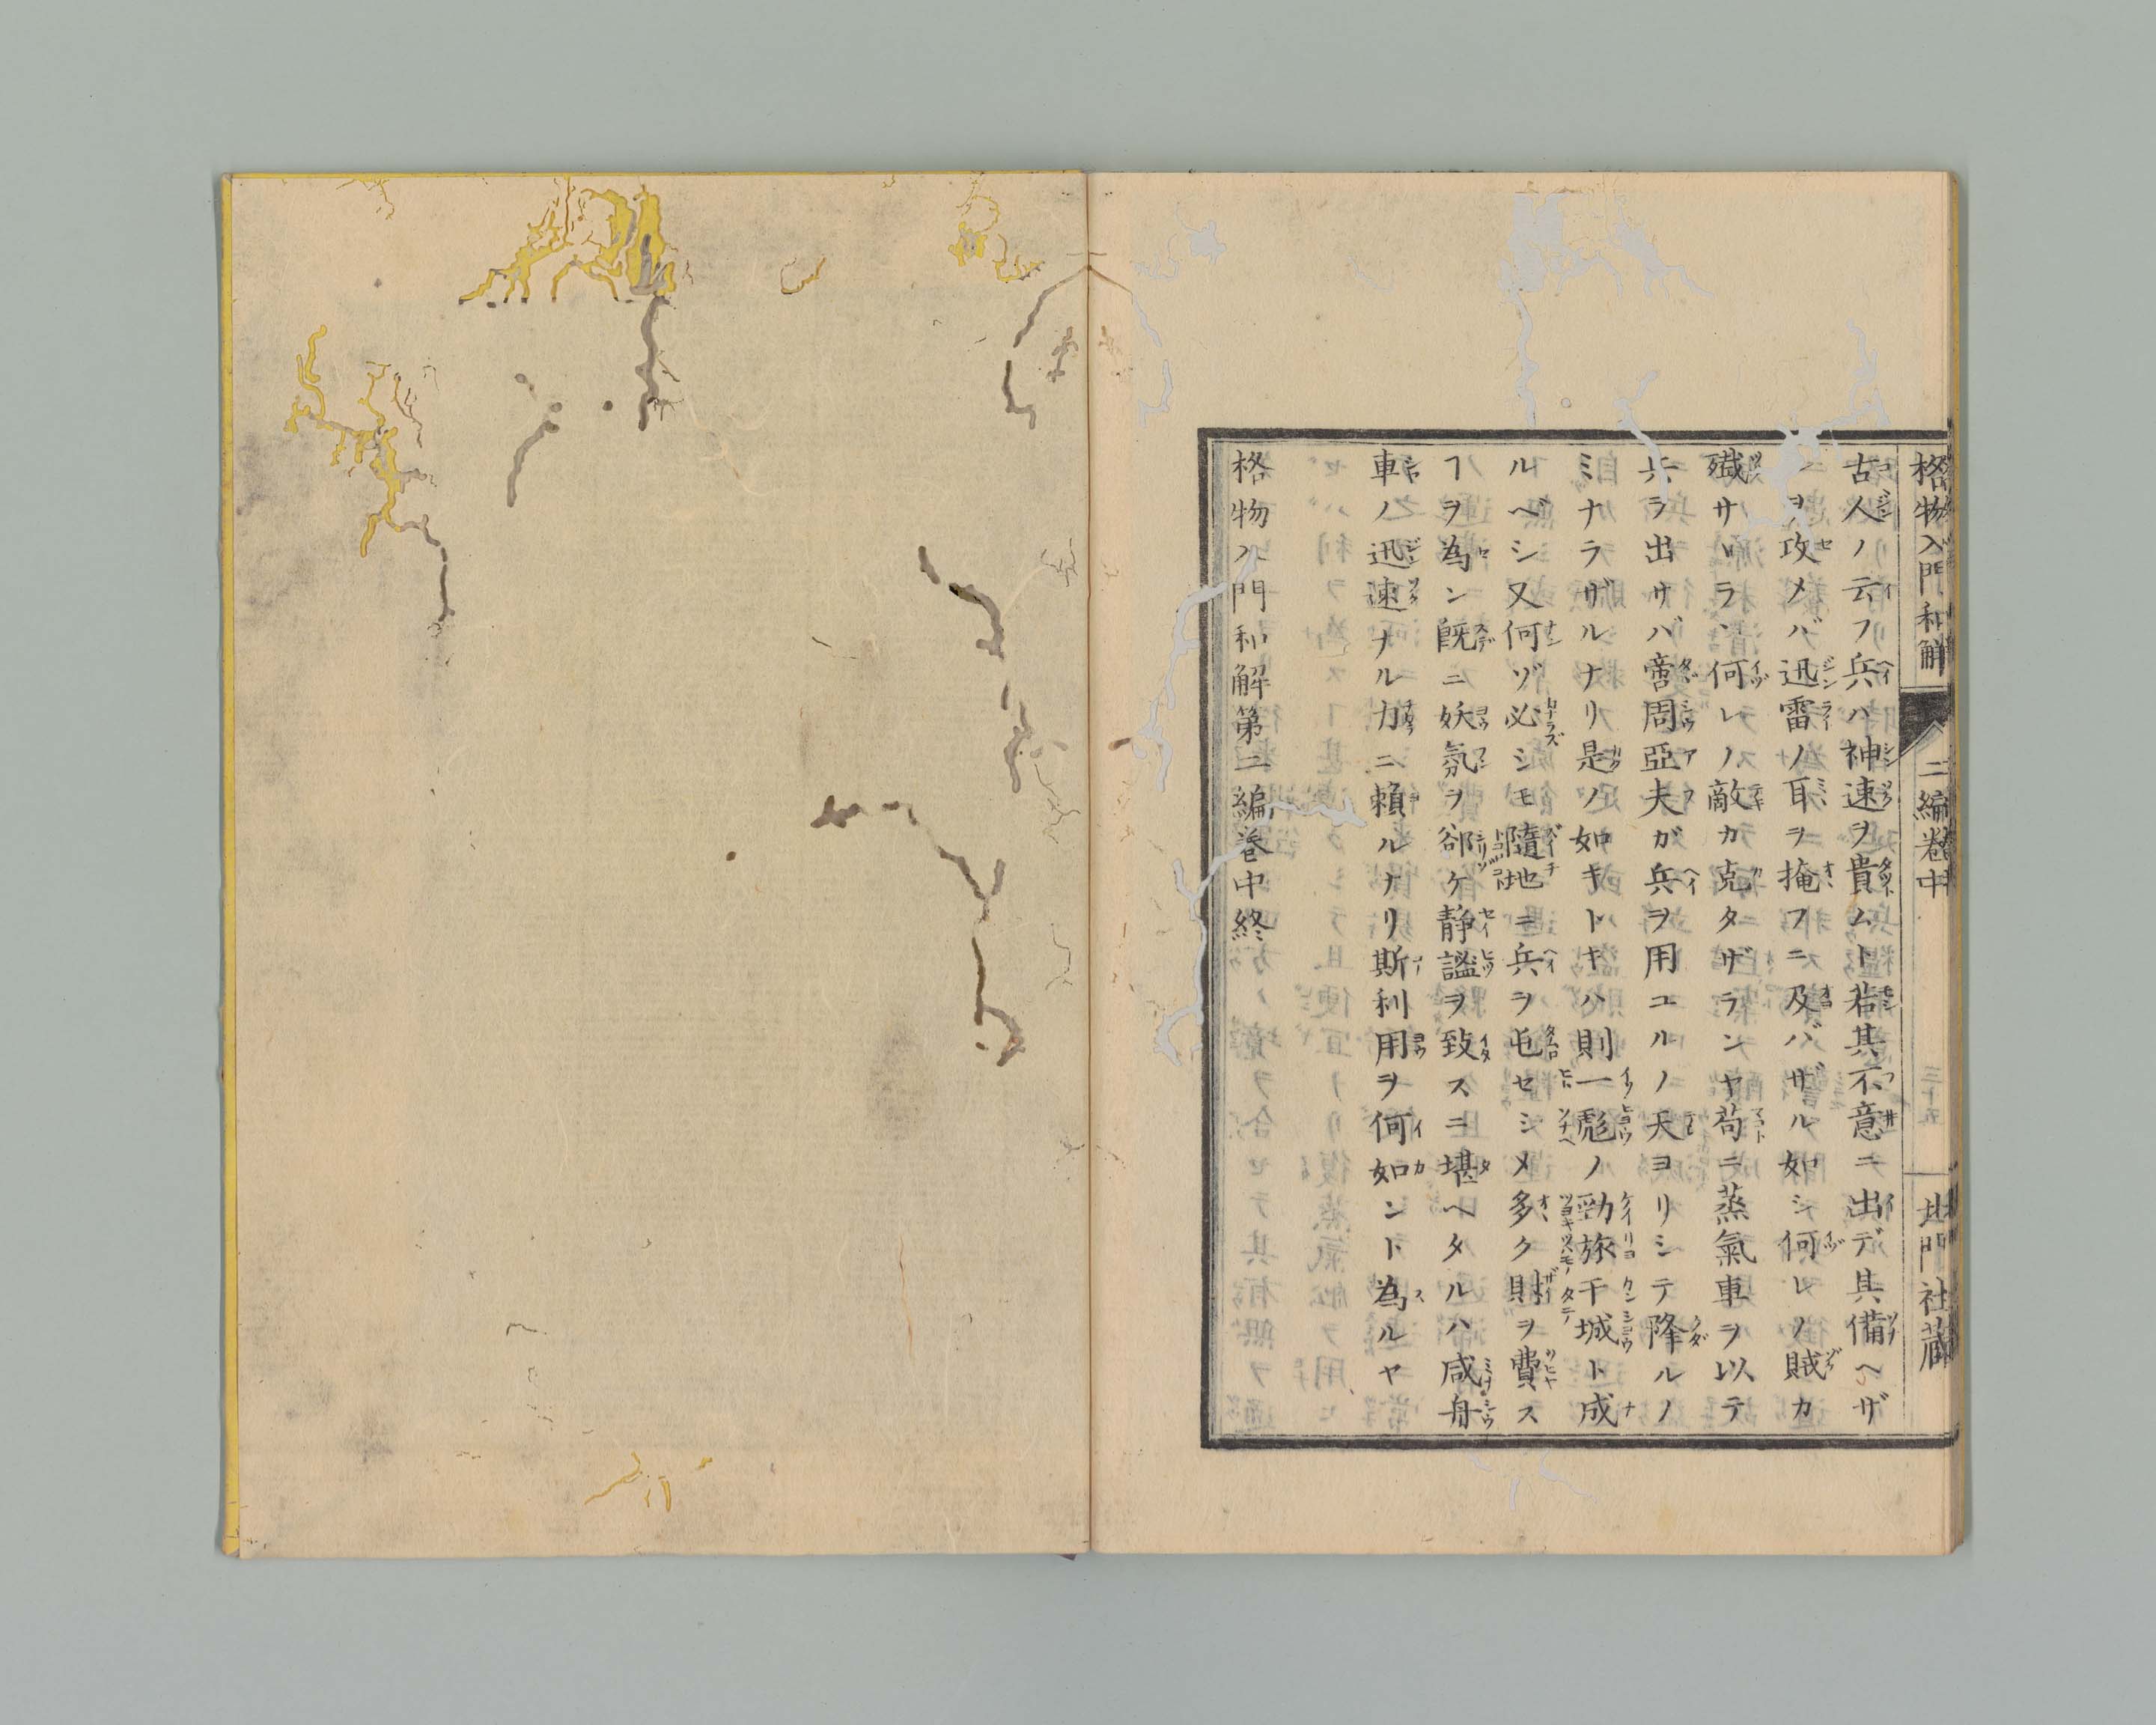 格物入門和解 二編卷中 三十五 北門社藏
古人ノ云フ兵ハ神速ヲ貴ムト若其不意ニ出デ其備ヘザ
ヲ攻メバ迅雷ノ耳ヲ掩フニ及バザル如シ何レノ賊カ
殲サヾラン何レノ敵カ克タザランヤ苟ニ蒸氣車ヲ以テ
兵ラ出サバ啻周亞夫ガ兵ヲ用ユルノ天ヨリシテ降ルノ
ミナラザルナリ是ノ如キトキハ則一彪ノ勁旅干城ト成
ルベシ又何ゾ必シモ隨地ニ兵ヲ屯セシメ多ク財ヲ費ス
ヿヲ為ン既ニ妖氛ヲ郤ケ靜謐ヲ致スニ堪ヘタルハ咸舟
車ノ迅速ナル力ニ賴ルナリ斯利用ヲ何如ント為ルヤ
格物入門和解第二編卷中終